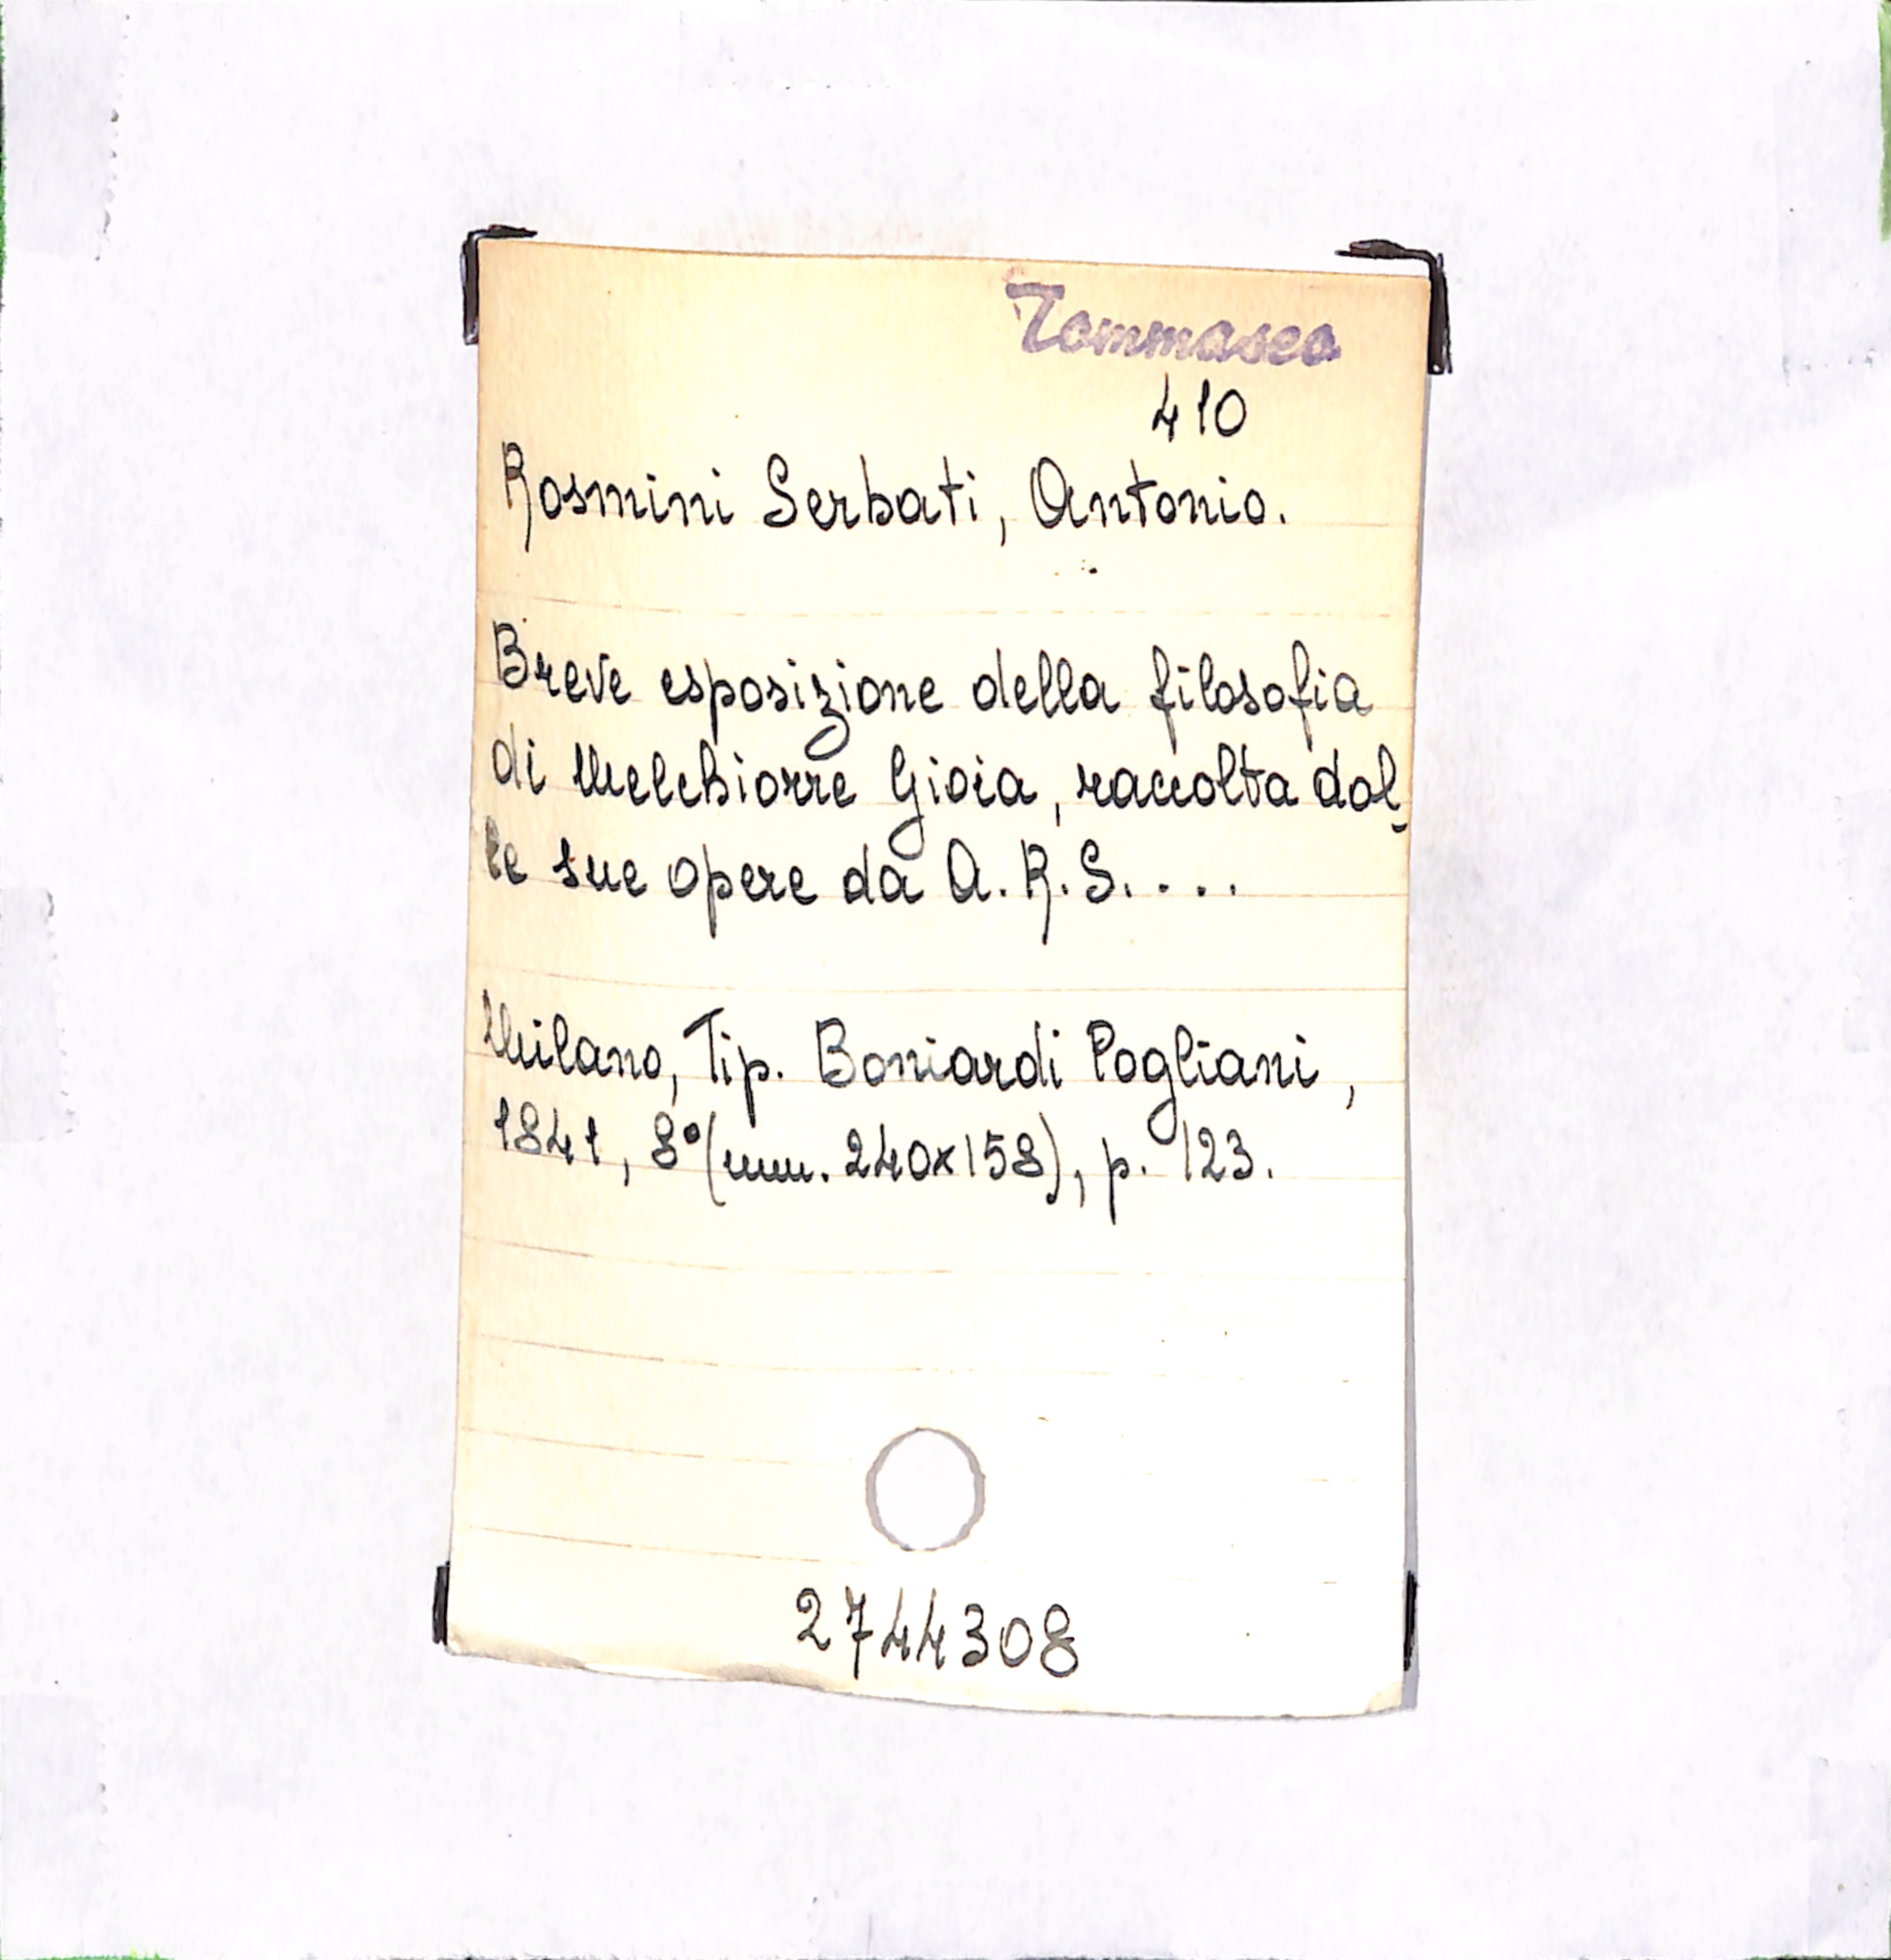 Tommaseo
410
Rosmini Serbati, Antonio.
Breve esposizione della filosofia
di Melchiorre Gioia, raccolta dal-
le sue opere da A. R. S. . . .
Milano, Tip. Boniardi Pogliani,
1841, 8° (mm. 240x158), p. 123.
2744308